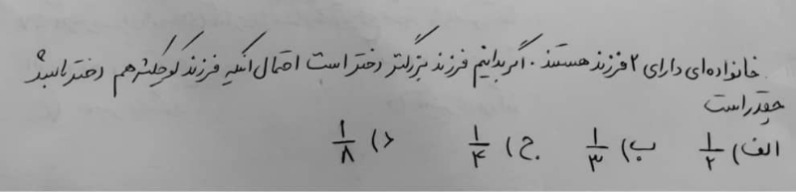 خانواده‌ای دارای ۲ فرزند هستند. اگر بدانیم فرزند بزرگتر دختر است احتمال آنکه فرزند کوچکتر هم دختر باشد
چقدر است
الف) ۱/۲ ب) ۱/۳ ج) ۱/۴ د) ۱/۸